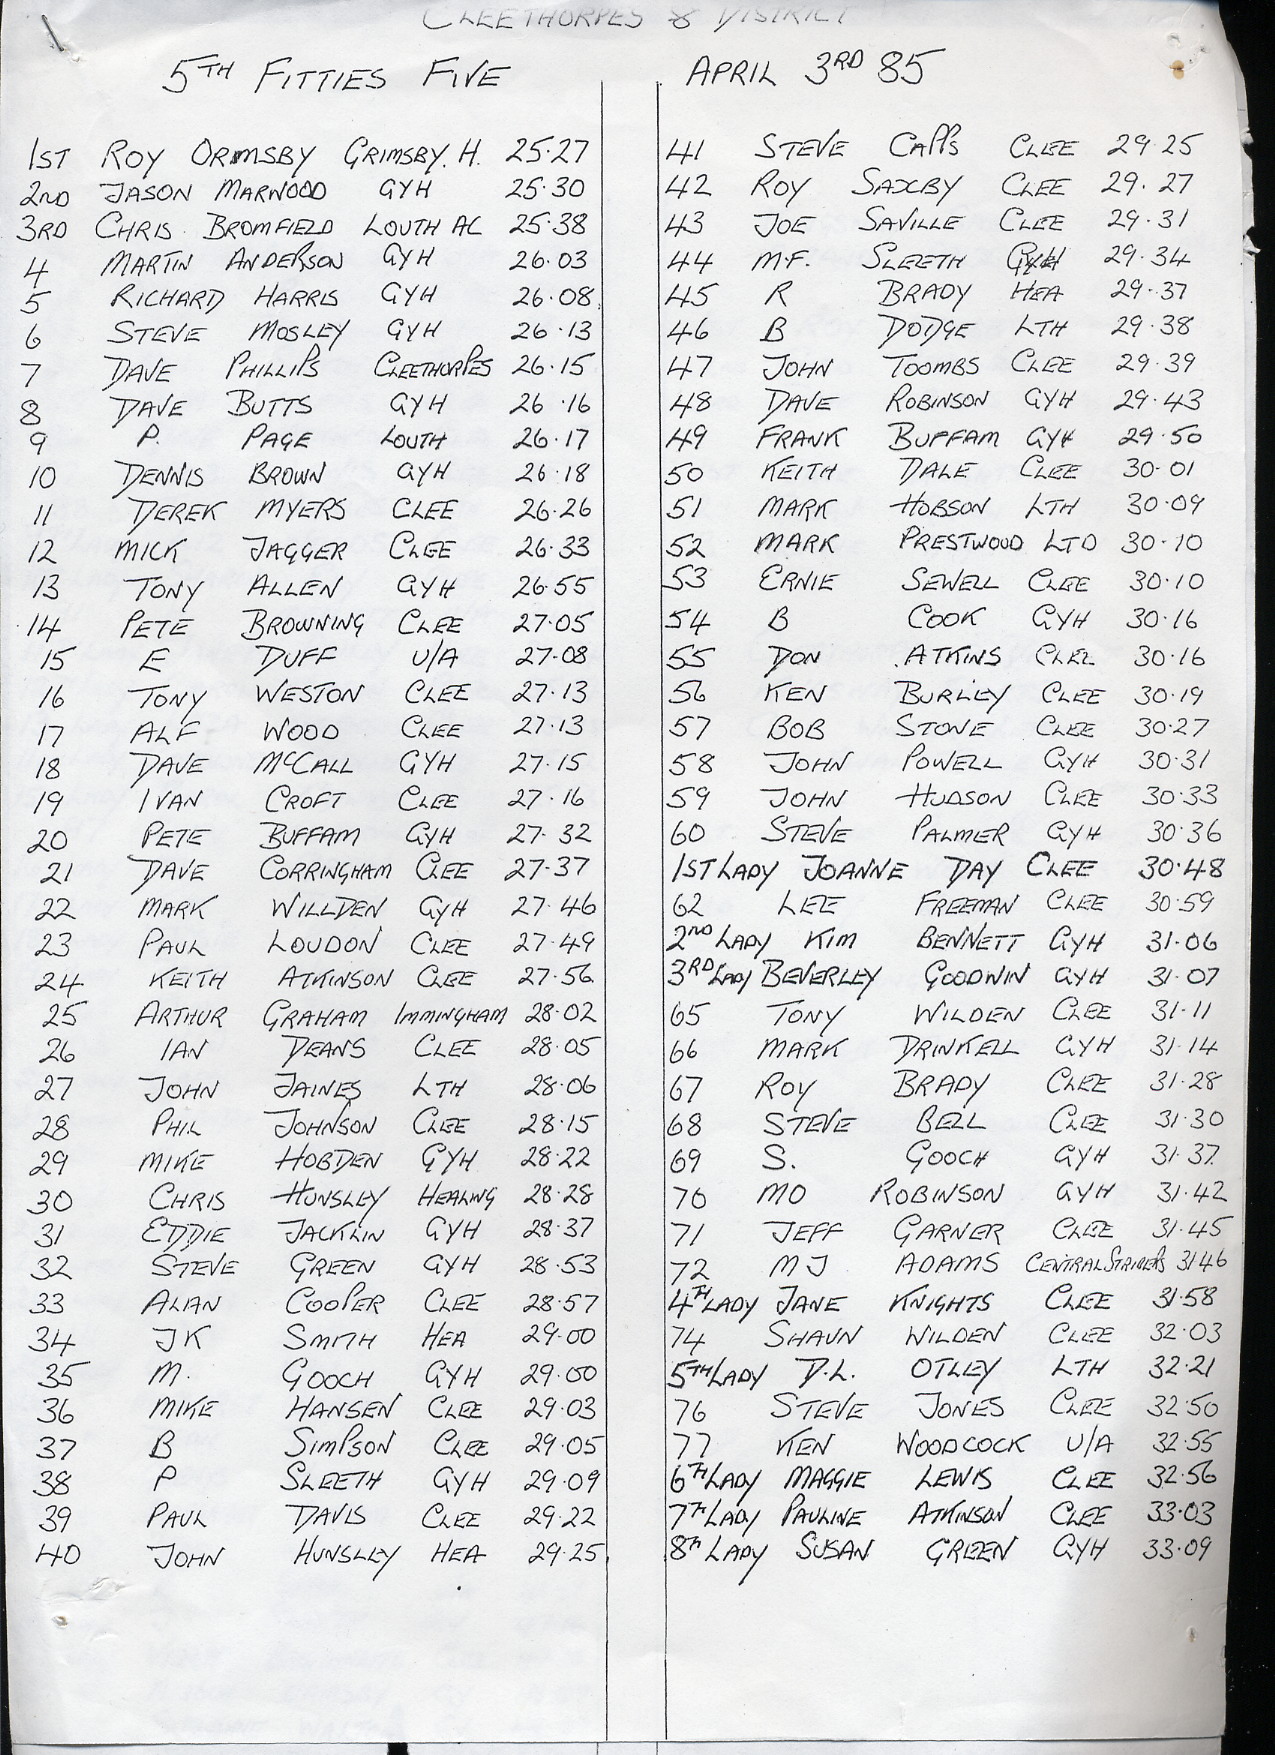 CLEETHORPES & DISTRICT
5TH FITTIES FIVE
APRIL 3RD 85
1ST ROY ORMSBY GRIMSBY. H. 25.27
2ND JASON MARWOOD GYH 25.30
3RD CHRIS BROMFIELD LOUTH AC 25.38
4 MARTIN ANDERSON GYH 26.03
5 RICHARD HARRIS GYH 26.08
6 STEVE MOSLEY GYH 26.13
7 DAVE PHILLIPS CLEETHORPES 26.15
8 DAVE BUTTS GYH 26.16
9 P. PAGE LOUTH 26.17
10 DENNIS BROWN GYH 26.18
11 DEREK MYERS CLEE 26.26
12 MICK JAGGER CLEE 26.33
13 TONY ALLEN GYH 26.55
14 PETE BROWNING CLEE 27.05
15 E DUFF U/A 27.08
16 TONY WESTON CLEE 27.13
17 ALF WOOD CLEE 27.13
18 DAVE McCALL GYH 27.15
19 IVAN CROFT CLEE 27.16
20 PETE BUFFAM GYH 27.32
21 DAVE CORRINGHAM CLEE 27.37
22 MARK WILLDEN GYH 27.46
23 PAUL LOUDON CLEE 27.49
24 KEITH ATKINSON CLEE 27.56
25 ARTHUR GRAHAM IMMINGHAM 28.02
26 IAN DEANS CLEE 28.05
27 JOHN JAINES LTH 28.06
28 PHIL JOHNSON CLEE 28.15
29 MIKE HOBDEN GYH 28.22
30 CHRIS HUNSLEY HEALING 28.28
31 EDDIE JACKLIN GYH 28.37
32 STEVE GREEN GYH 28.53
33 ALAN COOPER CLEE 28.57
34 JK SMITH HEA 29.00
35 M. GOOCH GYH 29.00
36 MIKE HANSEN CLEE 29.03
37 B SIMPSON CLEE 29.05
38 P SLEETH GYH 29.09
39 PAUL DAVIS CLEE 29.22
40 JOHN HUNSLEY HEA 29.25
41 STEVE CAPPS CLEE 29.25
42 ROY SAXBY CLEE 29.27
43 JOE SAVILLE CLEE 29.31
44 M.F. SLEETH GYH 29.34
45 R BRADY HEA 29.37
46 B DODGE LTH 29.38
47 JOHN TOOMBS CLEE 29.39
48 DAVE ROBINSON GYH 29.43
49 FRANK BUFFAM GYH 29.50
50 KEITH DALE CLEE 30.01
51 MARK HOBSON LTH 30.09
52 MARK PRESTWOOD LTD 30.10
53 ERNIE SEWELL CLEE 30.10
54 B COOK GYH 30.16
55 DON ATKINS CLEE 30.16
56 KEN BURLEY CLEE 30.19
57 BOB STONE CLEE 30.27
58 JOHN POWELL GYH 30.31
59 JOHN HUDSON CLEE 30.33
60 STEVE PALMER GYH 30.36
1ST LADY JOANNE DAY CLEE 30.48
62 LEE FREEMAN CLEE 30.59
2ND LADY KIM BENNETT GYH 31.06
3RD LADY BEVERLEY GOODWIN GYH 31.07
65 TONY WILDEN CLEE 31.11
66 MARK DRINKELL GYH 31.14
67 ROY BRADY CLEE 31.28
68 STEVE BELL CLEE 31.30
69 S. GOOCH GYH 31.37
70 MO ROBINSON GYH 31.42
71 JEFF GARNER CLEE 31.45
72 MJ ADAMS CENTRAL STRIDERS 31.46
4TH LADY JANE KNIGHTS CLEE 31.58
74 SHAUN WILDEN CLEE 32.03
5TH LADY D.L. OTLEY LTH 32.21
76 STEVE JONES CLEE 32.50
77 KEN WOODCOCK U/A 32.55
6TH LADY MAGGIE LEWIS CLEE 32.56
7TH LADY PAULINE ATKINSON CLEE 33.03
8TH LADY SUSAN GREEN GYH 33.09